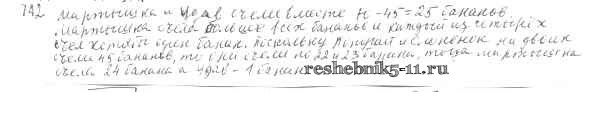 742 мартышка и удав съели вместе 70-45=25 бананов.
мартышка съела больше всех бананов и каждый из четырёх
съел хотя бы один банан. поскольку попугай и слонёнок на двоих
съели 45 бананов, то они съели по 22 и 23 банана, тогда мартышка
съела 24 банана а удав - 1 банан
reshebnik5-11.ru